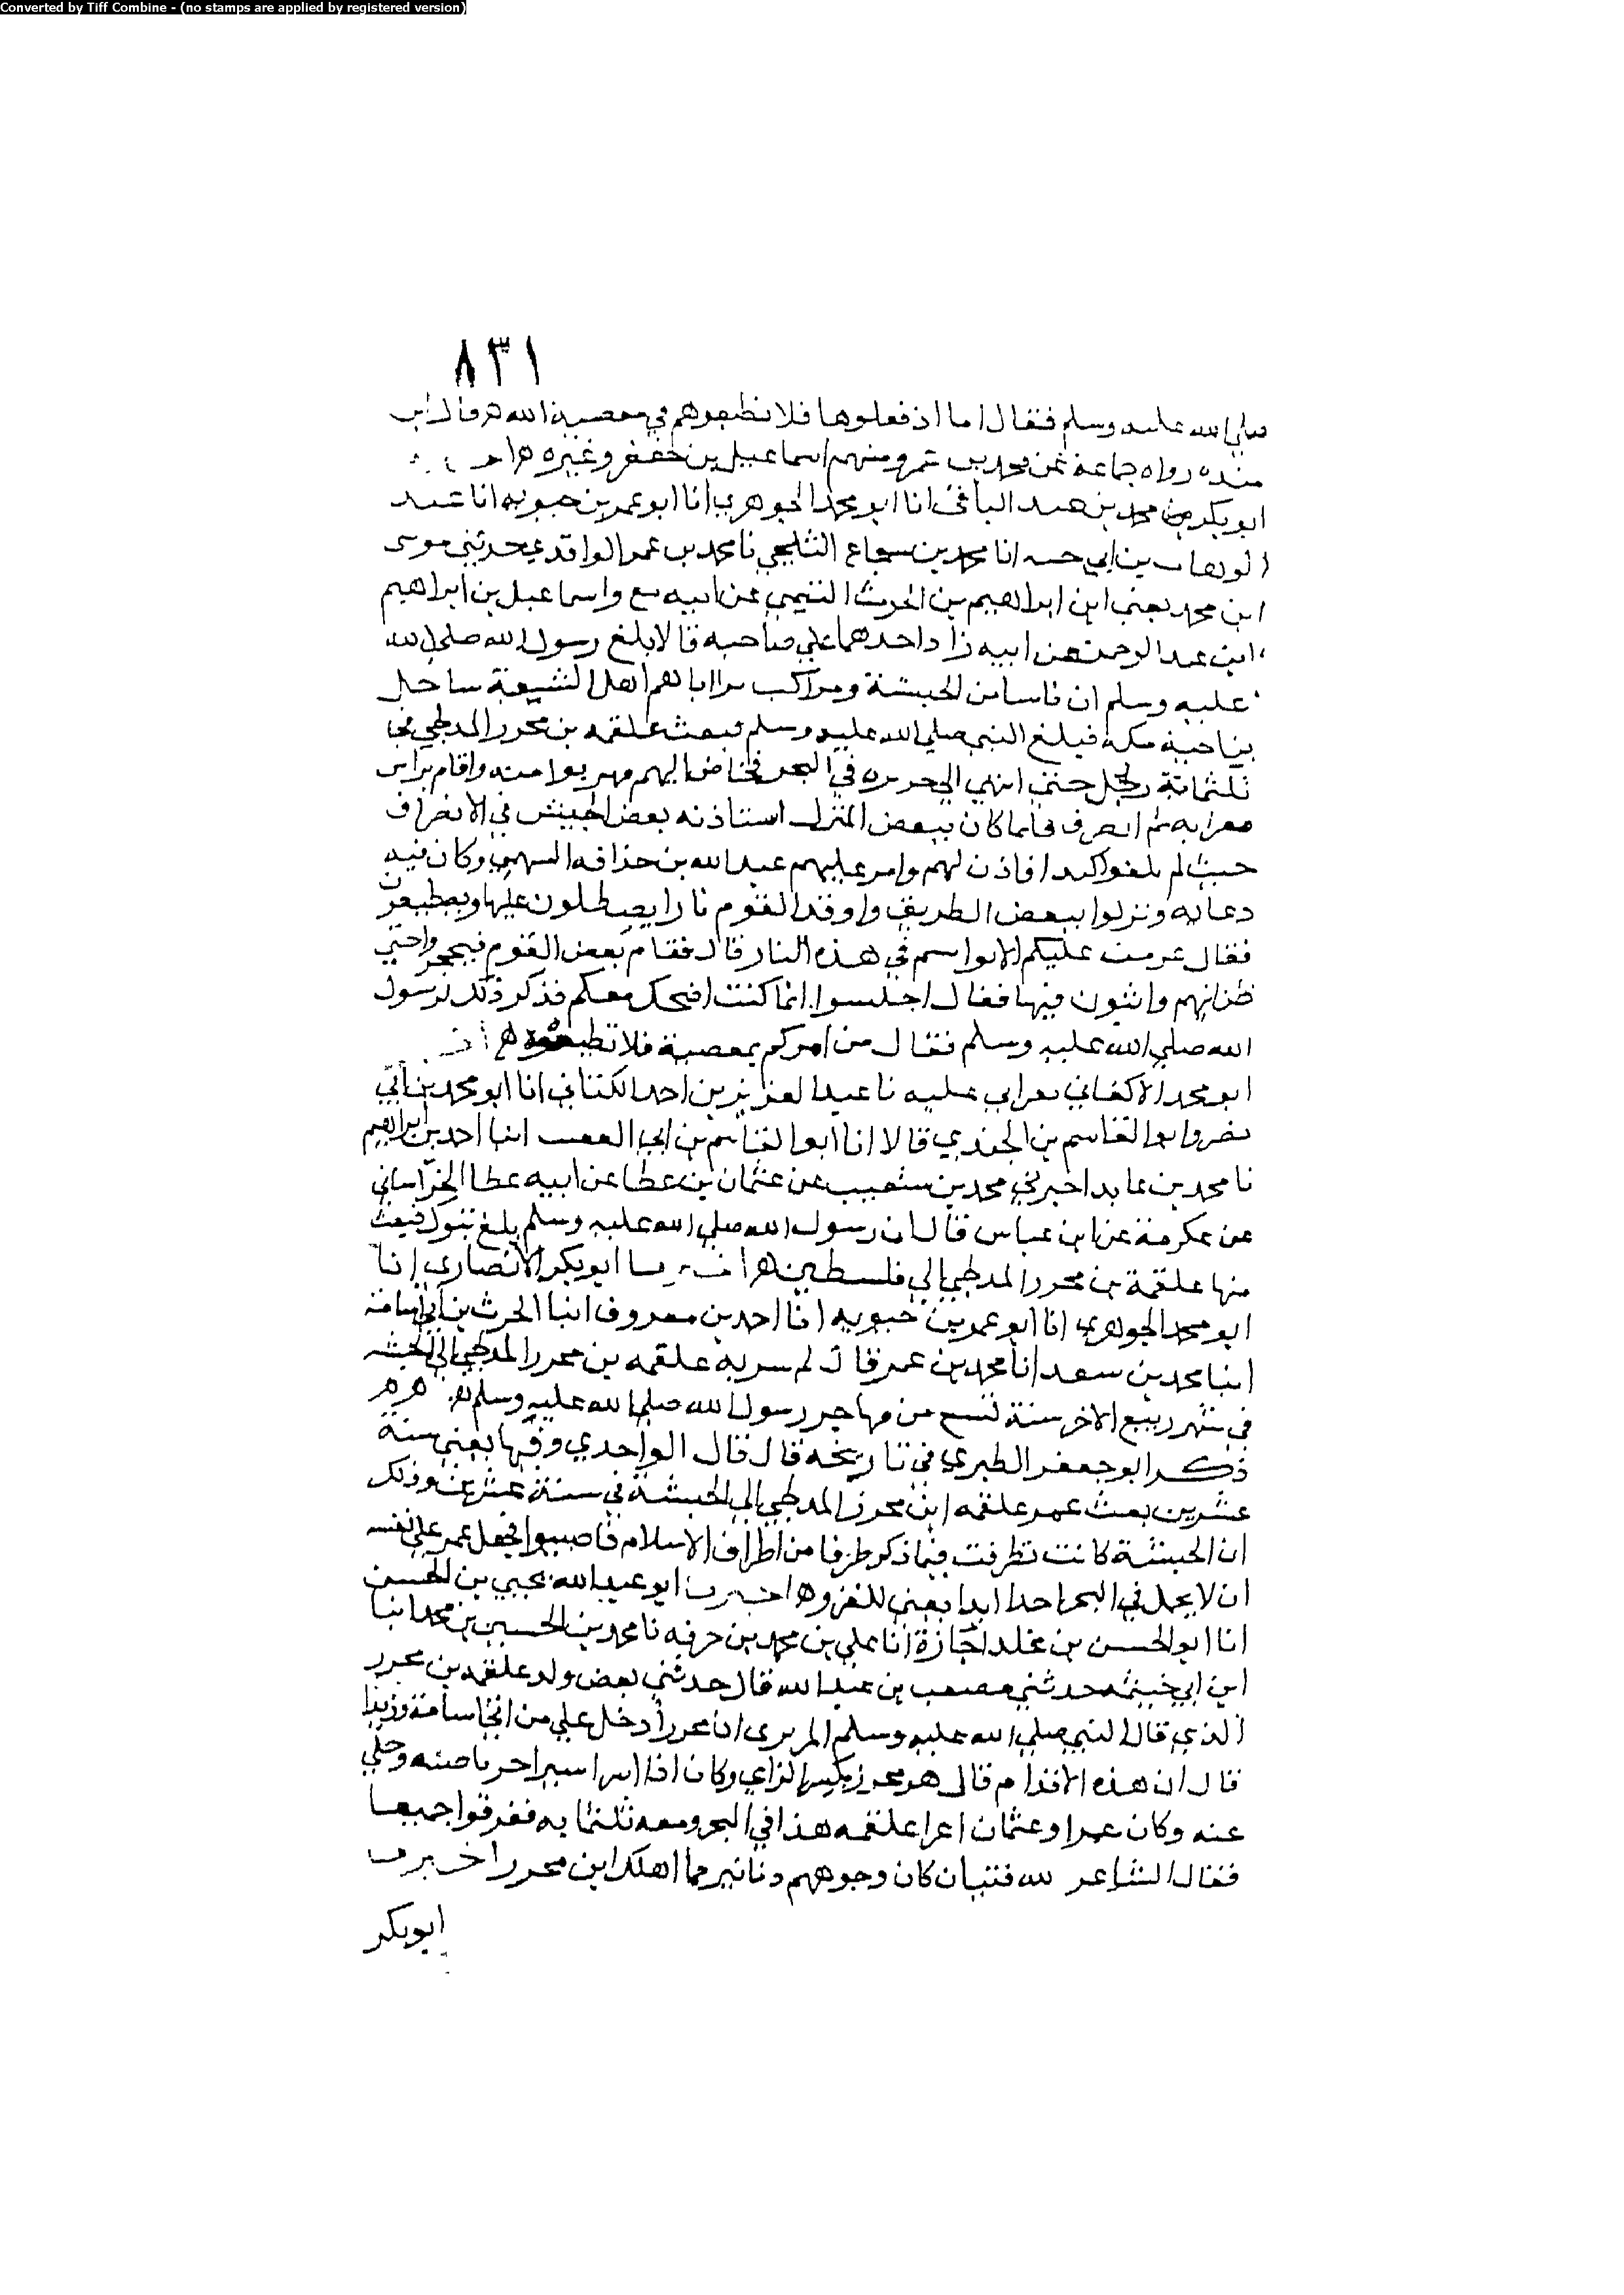 Converted by Tiff Combine - (no stamps are applied by registered version)
٨٣١
صلى الله عليه وسلم فقال اما اذ فعلوها فلا تطيعوهم في معصية الله هـ وقال ابن
منده رواه جماعة عن محمد بن عمرو منهم اسماعيل بن جعفر وغيره هـ
ابو بكر محمد بن عبد الباقي انا ابو محمد الجوهري انا ابو عمر بن حيويه انا عبد
الوهاب بن ابي حيه انا محمد بن شجاع الثلجي نا محمد بن عمر الواقدي حدثني موسى
ابن محمد يعني ابن ابراهيم بن الحرث التيمي عن ابيه واسماعيل بن ابراهيم
ابن عبد الرحمن عن ابيه زاد احدهما على صاحبه قالا بلغ رسول الله صلى الله
عليه وسلم ان ناسا من الحبشة ومراكب اهل الشعيبة ساحل
بناحية مكة فبلغ النبي صلى الله عليه وسلم فبعث علقمه بن محرر المدلجي في
ثلثمائة رجل حتى انتهى الى جزيره في البحر فخاض اليهم فهربوا منه واقام
ثم انصرف فلما كان ببعض المنزل استاذنه بعض الجيش في الانصراف
حيث لم يلقوا كيدا فاذن لهم وامر عليهم عبد الله بن حذافه السهمي وكان فيه
دعابه ونزلوا ببعض الطريق واوقد القوم نارا يصطلون عليها ويصطنعون
فقال عزمت عليكم الا تواثبتم في هذه النار قال فقام بعض القوم فتحجزوا حتى
ظن انهم واثبون فيها فقال اجلسوا انما كنت اضحك معكم فذكر ذلك لرسول
الله صلى الله عليه وسلم فقال من امركم بمعصية فلا تطيعوه هـ
ابو محمد الاكفاني بقراتي عليه نا عبد العزيز بن احمد الكتاني انا ابو محمد بن ابي
نصر وابو القاسم بن الجندي قالا انا ابو القاسم بن ابي العقب انبا احمد بن ابراهيم
نا محمد بن عايد اخبرني محمد بن شعيب عن عثمان بن عطا عن ابيه عطا الخراساني
عن عكرمة عن ابن عباس قال ان رسول الله صلى الله عليه وسلم بلغ تبوك فبعث
منها علقمة بن محرر المدلجي الى فلسطين هـ اخبرنا ابو بكر الانصاري انا
ابو محمد الجوهري انا ابو عمر بن حيويه انا احمد بن معروف انبا الحرث بن ابي اسامة
انبا محمد بن سعد انا محمد بن عمر قال ثم سرية علقمه بن محرر المدلجي الى الحبشه
في شهر ربيع الاخر سنة تسع من مهاجر رسول الله صلى الله عليه وسلم هـ
ذكر ابو جعفر الطبري في تاريخه قال قال الواحدي وفيها يعني سنة
عشرين بعث عمر علقمه ابن محرز المدلجي الى الحبشة في سنة عشرين وذلك
ان الحبشة كانت تطرفت فيما ذكر طرفا من اطراف الاسلام فاصيبوا فجعل عمر على نفسه
ان لا يحمل في البحر احدا ابدا يعني للغزو هـ اخبرنا ابو عبد الله يحيى بن الحسن
انا ابو الحسن بن مخلد اجازة انا علي بن محمد بن خزفه نا محمد بن الحسين بن محمد انبا
ابن ابي خيثمه حدثني مصعب بن عبد الله قال حدثني بعض ولد علقمه بن محرر
الذي قال النبي صلى الله عليه وسلم الم تري ان محررا دخل علي من اسامة وزيدا
قال ان هذه الاقدام قال هو محرز بكسر الزاي وكان اذا اسر اسيرا جز ناصيته وخلي
عنه وكان عمر او عثمان اغزا علقمه هذا في البحر ومعه ثلثمايه فغرقوا جميعا
فقال الشاعر لله فتيان كان وجوههم دنانير مما اهلك ابن محرر اخبرنا
ابو بكر